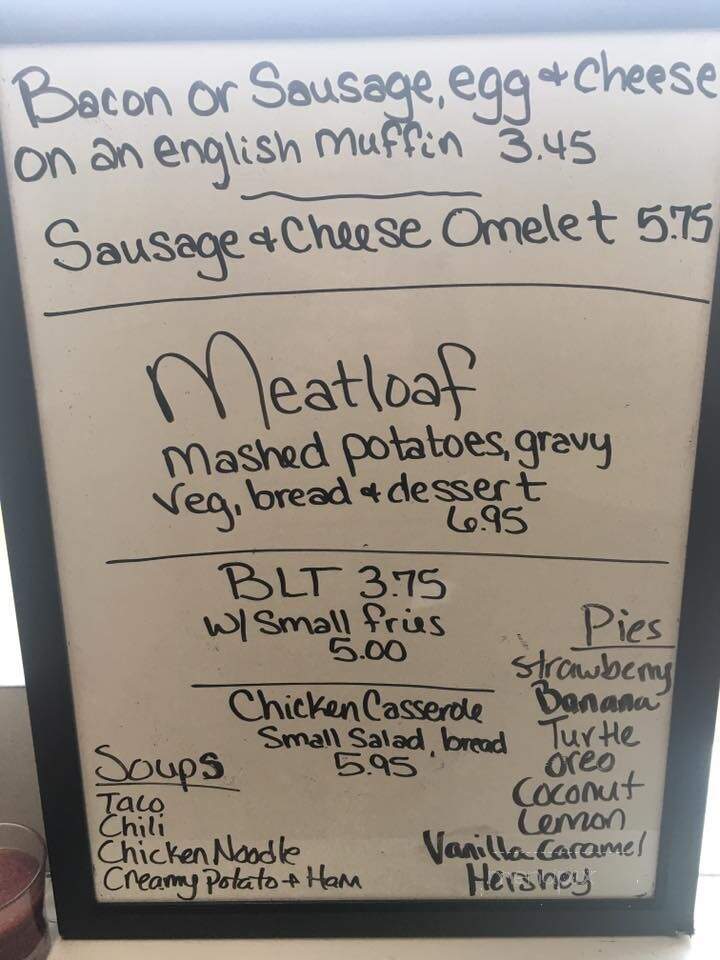 Bacon or Sausage, egg + Cheese
on an english muffin 3.45
Sausage + Cheese Omelet 5.75
Meatloaf
Mashed potatoes, gravy
Veg, bread + dessert
6.95
BLT 3.75
w/ Small fries
5.00
Chicken Casserole
Small Salad, bread
5.95
Soups
Taco
Chili
Chicken Noodle
Creamy Potato + Ham
Pies
Strawberry
Banana
Turtle
Oreo
Coconut
Lemon
Vanilla Caramel
Hershey